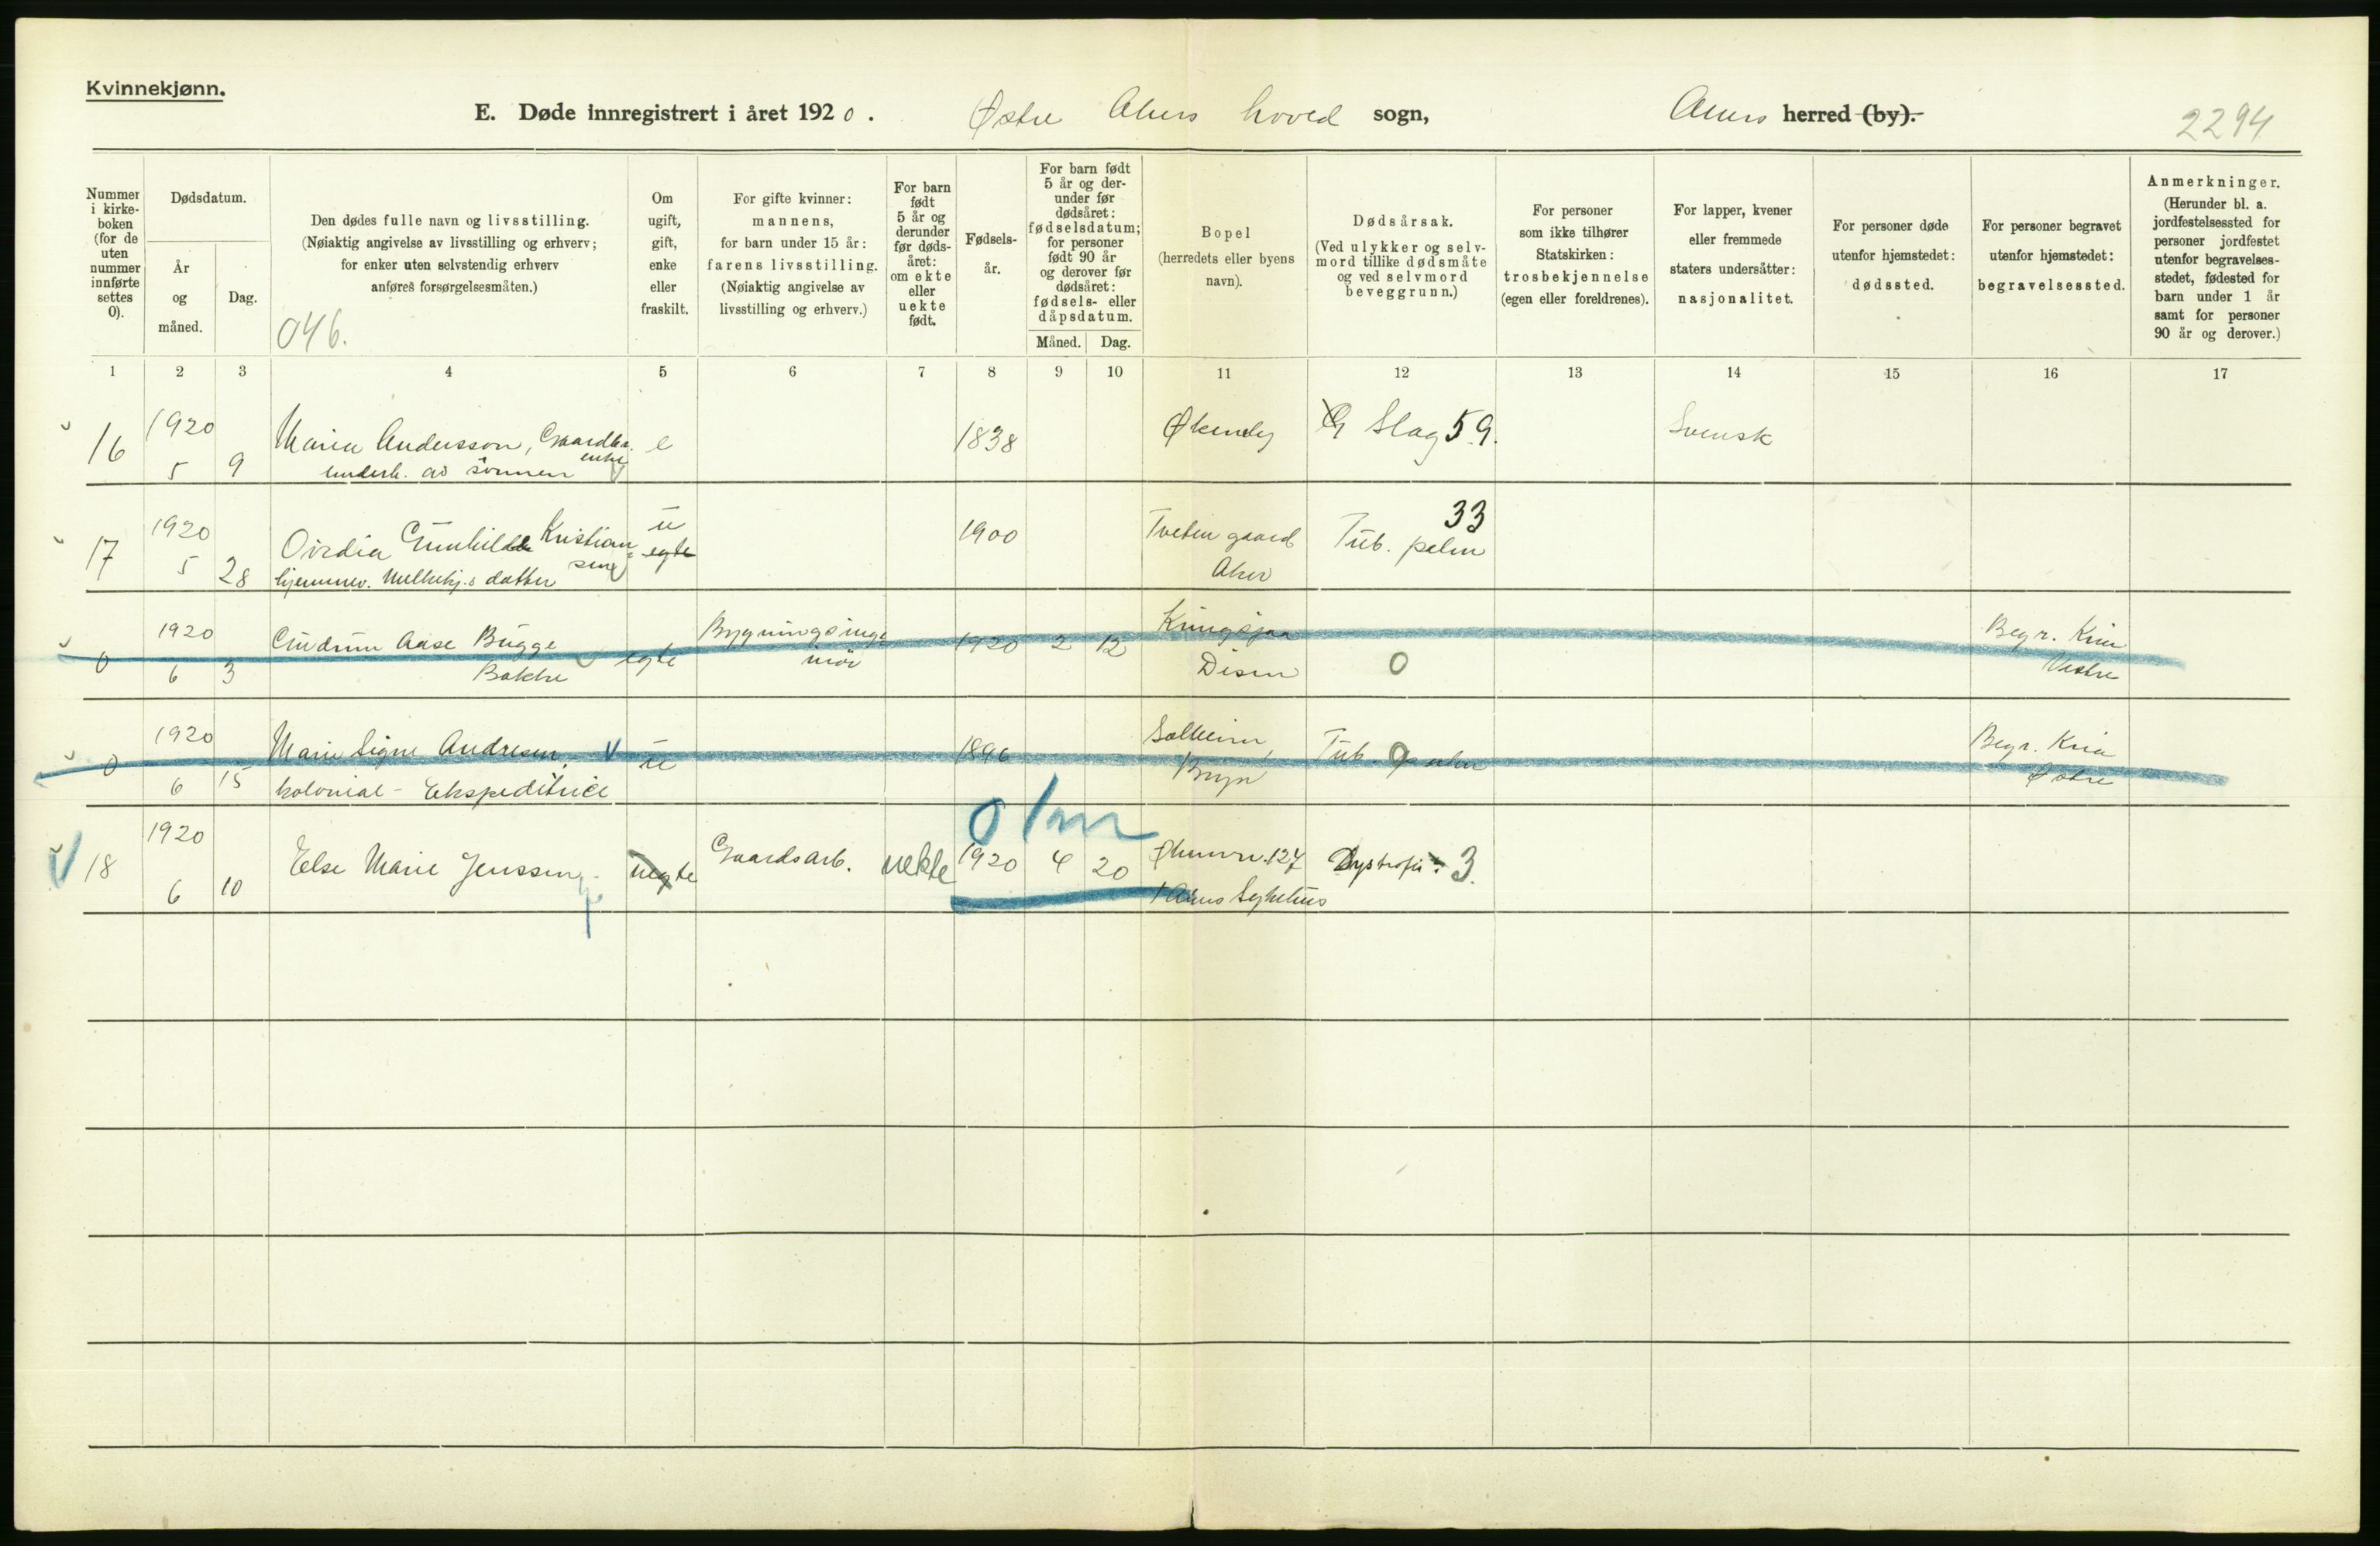 Kvinnekjønn.
E. Døde innregistrert i året 1920. Østre Akers hoved sogn, Akers herred (by).
2294
Nummer i kirkeboken (for de uten nummer innførte settes 0).
Dødsdatum.
År og måned.
Dag.
Den dødes fulle navn og livsstilling.
(Nøiaktig angivelse av livsstilling og erhverv;
for enker uten selvstendig erhverv
anføres forsørgelsesmåten.)
046.
Om ugift, gift, enke eller fraskilt.
For gifte kvinner:
mannens,
for barn under 15 år:
farens livsstilling.
(Nøiaktig angivelse av
livsstilling og erhverv.)
For barn født 5 år og derunder før dødsåret: om ekte eller uekte født.
Fødselsår.
For barn født 5 år og derunder før dødsåret: fødselsdatum; for personer født 90 år og derover før dødsåret: fødsels- eller dåpsdatum.
Måned. Dag.
Bopel
(herredets eller byens
navn).
Dødsårsak.
(Ved ulykker og selvmord tillike dødsmåte og ved selvmord beveggrunn.)
For personer
som ikke tilhører
Statskirken:
trosbekjennelse
(egen eller foreldrenes).
For lapper, kvener
eller fremmede
staters undersåtter:
nasjonalitet.
For personer døde
utenfor hjemstedet:
dødssted.
For personer begravet
utenfor hjemstedet:
begravelsessted.
Anmerkninger.
(Herunder bl. a.
jordfestelsessted for
personer jordfestet
utenfor begravelsesstedet, fødested for
barn under 1 år
samt for personer
90 år og derover.)
1 2 3 4 5 6 7 8 9 10 11 12 13 14 15 16 17
16 1920 5 9 Maria Andersson, Gaardbr. enke e 1838 Slag 59. Svensk
underh. av sönnen
17 1920 5 28 Ovidia Gunhilde Kristiansen u egte 1900 Tveten gaard Aker Tub. pulm 33
hjemmev. datter
0 1920 6 3 Gudrun Aase Bugge Bakke egte Bygningsingeniör 1920 2 12 Disen 0 Begr. Kria Vestre
0 1920 6 15 Marie Signe Andresen. u 1896 Solheim, Bryn Tub. pulm 0 Begr. Kria Østre
kolonial-Ekspeditrice
0/m
18 1920 6 10 Else Marie Jenssen uegte Gaardsarb. uekte 1920 4 20 Økernv. 127 Dystrofi: 3.
Akers Sykehus